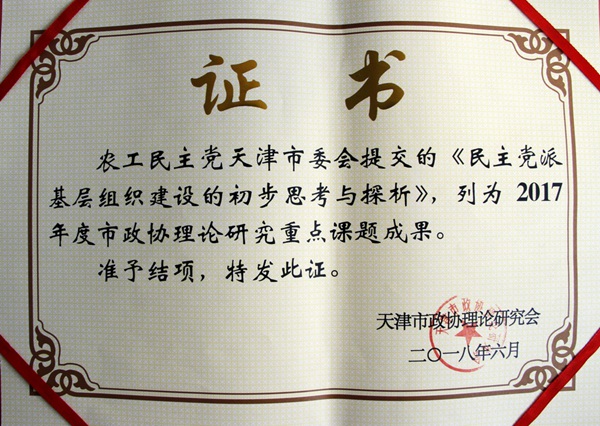 证书
农工民主党天津市委会提交的《民主党派
基层组织建设的初步思考与探析》，列为 2017
年度市政协理论研究重点课题成果。
准予结项，特发此证。
天津市政协理论研究会
二〇一八年六月